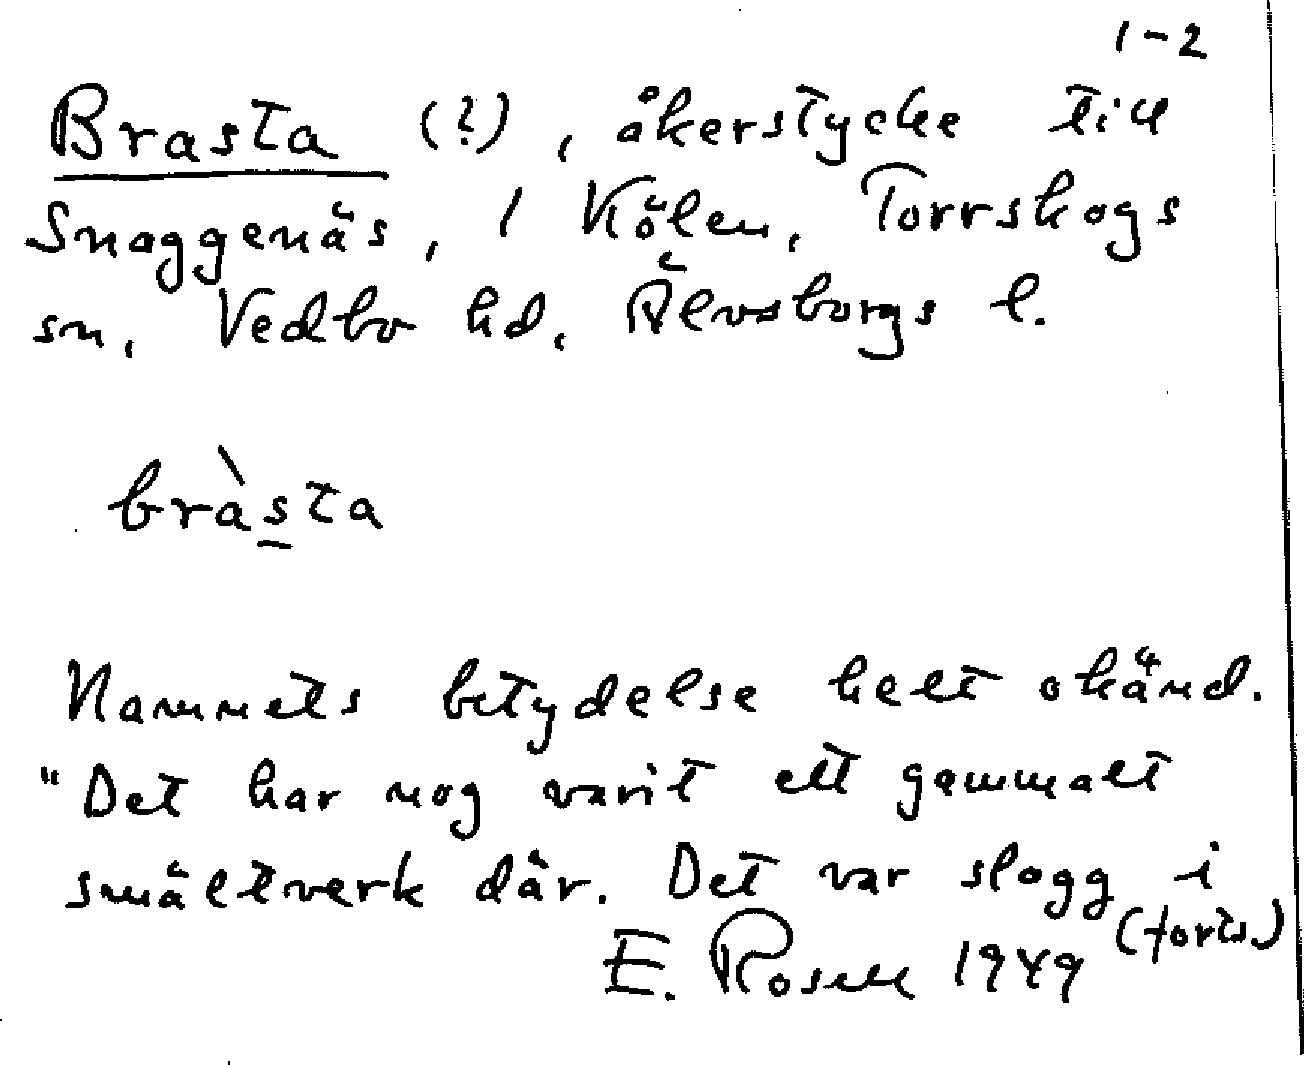 1-2
Brasta (?), åkerstycke till
Snaggenäs, 1 Kölen, Torrskogs
sn, Vedbo hd, Älvsborgs l.
bràsta
Namnets betydelse helt okänd.
"Det har nog varit ett gammalt
smältverk där. Det var slagg i
(forts.)
E. Rosell 1949